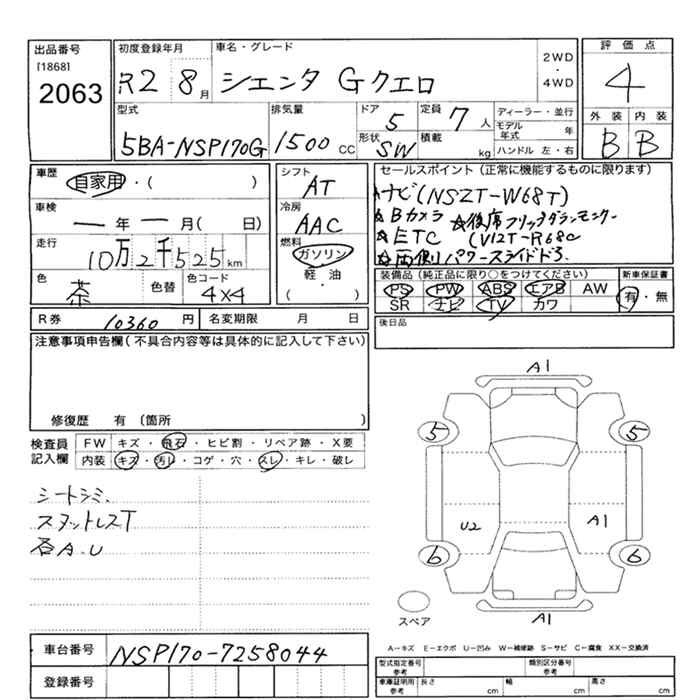 出品番号
[1868]
2063
初度登録年月
R2 8月
車名・グレード
シエンタ Gクエロ
2WD
・
4WD
評価点
4
外装 内装
B B
型式
5BA-NSP170G
排気量
1500 CC
ドア
5
形状
SW
定員
7人
積載
kg
ディーラー・並行
モデル年式 年
ハンドル 左・右
車歴
自家用・( )
車検
— 年 — 月( 日)
走行
10万2千525km
色
茶
色替
色コード
4X4
シフト
AT
冷房
AAC
燃料
ガソリン
軽・油
・( )
セールスポイント(正常に機能するものに限ります)
ナビ(NSZT-W68T)
★Bカメラ ★後席フリップダウンモニター
★ETC (V12T-R68C
★両側パワースライドドア
装備品(純正品に限り○をつけてください)
PS PW ABS エアB AW
SR ナビ TV カワ
新車保証書
有・無
R券 10360円
名変期限 月 日
後日品
注意事項申告欄(不具合内容等は具体的に記入して下さい)
修復歴 有 (箇所 )
検査員
記入欄
FW キズ・飛石・ヒビ割・リペア跡・X要
内装 キズ・汚レ・コゲ・穴・スレ・キレ・破レ
シートシミ、
スタットレスT
各A.U
A1
5 5
U2 A1
6 6
スペア
A1
車台番号
NSP170-7258044
登録番号
A=キズ E=エクボ U=凹み W=補修跡 S=サビ C=腐食 XX=交換済
型式指定番号
参考
類別区分番号
参考
車庫証明用
参考
長さ cm 幅 cm 高さ cm